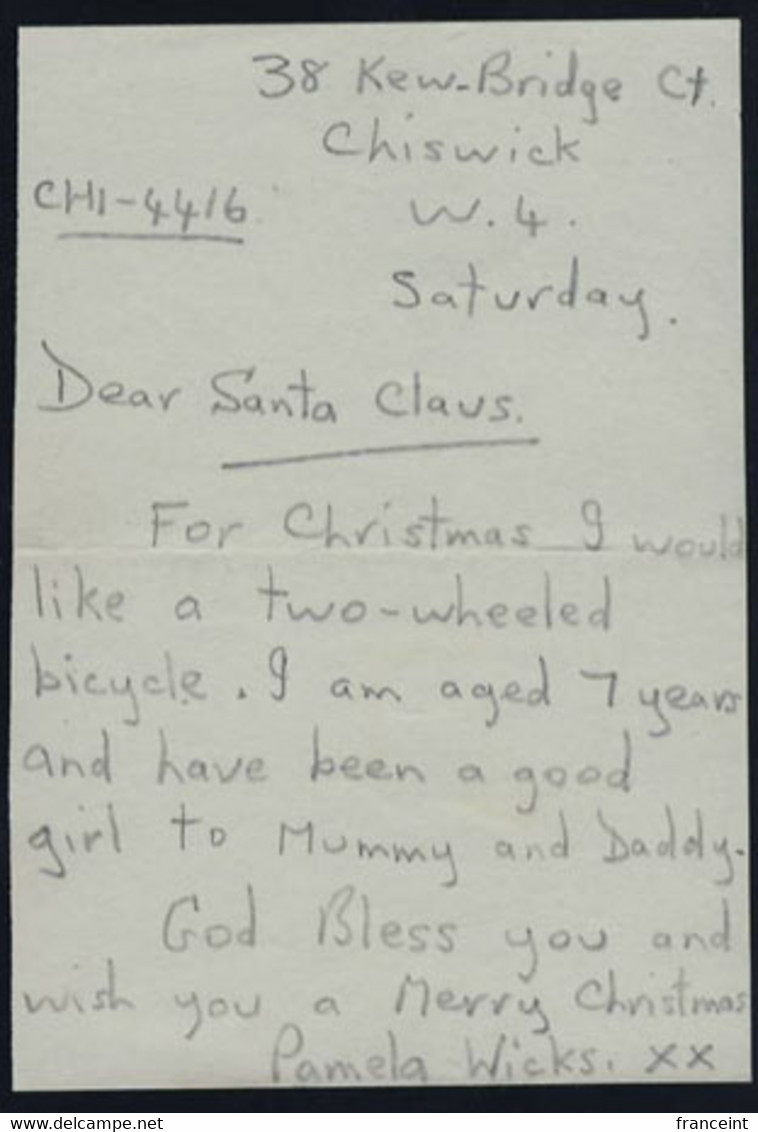 38 Kew-Bridge Ct.
Chiswick
CHI-4416
W.4.
Saturday.
Dear Santa Claus.
For Christmas I would
like a two-wheeled
bicycle. I am aged 7 years
and have been a good
girl to Mummy and Daddy.
God Bless you and
wish you a Merry Christmas
Pamela Wicks. xx
www.delcampe.net
franceint